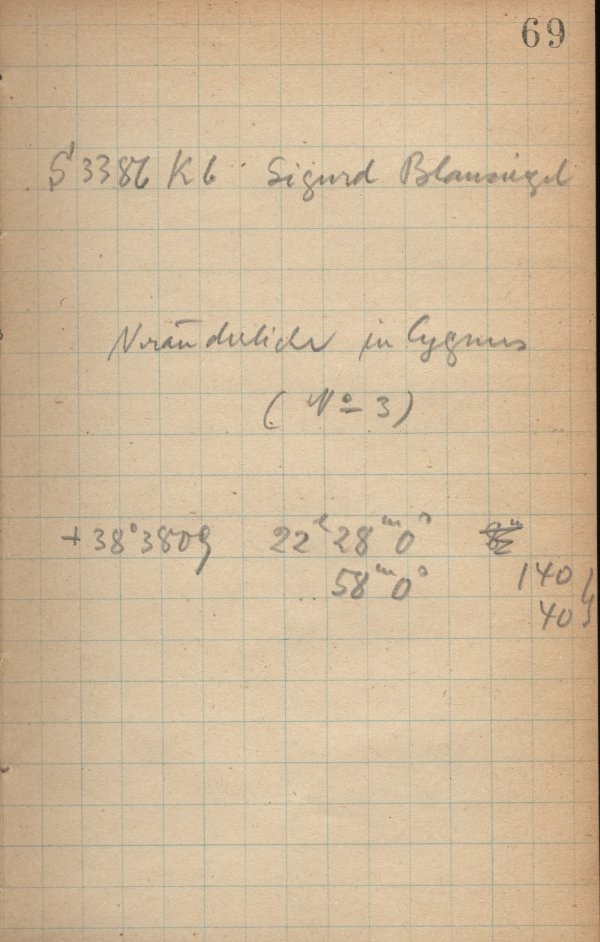 69
S 3386 Kb Sigurd Blauziegel
Veränderliche in Cygnus
(No 3)
+38°3809 22h 28m 0s
58m 0s 140
40